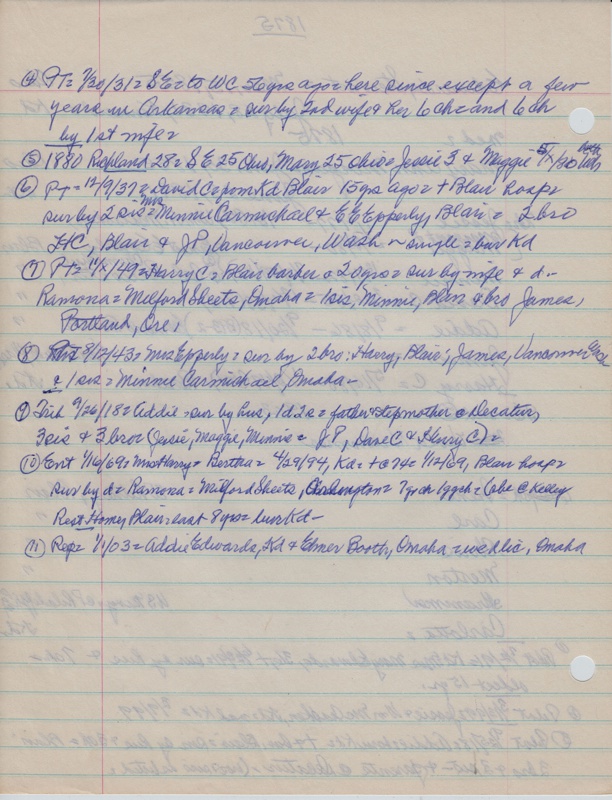 1875
④ PT= 7/30/31= S E= to WC 56yrs ago= here since except a few
years in Arkansas= sur by 2nd wife & her 6 ch= and 6 ch
by 1st wife=
⑤ 1880 Richland 28= S E 25 Ohio, Mary 25 Ohio= Jessie 3 & Maggie 5/
⑥ PT= 12/9/37= David C= from Kd Blair 15yrs ago= + Blair hosp=
sur by 2 sis= Mrs Minnie Carmichael & E E Epperly, Blair= 2 bro
HC, Blair & JP, Vancouver, Wash ~ single= bur Kd
⑦ PT= 11/ /49= Harry C= Blair barber 20yrs= sur by wife & d-
Ramona= Milford Sheets, Omaha= 1sis, Minnie, Blair & bro James,
Portland, Ore,
⑧ 8/12/43= Mrs Epperly= sur by 2 bro: Harry, Blair; James, Vancouver
& 1 sis= Minnie Carmichael, Omaha-
⑨ Trib 9/26/18= Addie= sur by hus, 1d 2s= father & stepmother @ Decatur,
3sis & 3 bro= (Jessie, Maggie, Minnie= JP, Dave C & Harry C)=
⑩ Ent 1/16/69= Mrs Harry= Bertha= 4/29/94, Kd= +@74= 1/12/69, Blair hosp=
sur by d= Ramona= Milford Sheets, Arlington= 7grch 1ggch= C Kelly
Rest Home, Blair= last 8yrs= bur Kd-
⑪ Rep= 1/1/03= Addie Edwards, Kd & Elmer Booth, Omaha= wed lic, Omaha